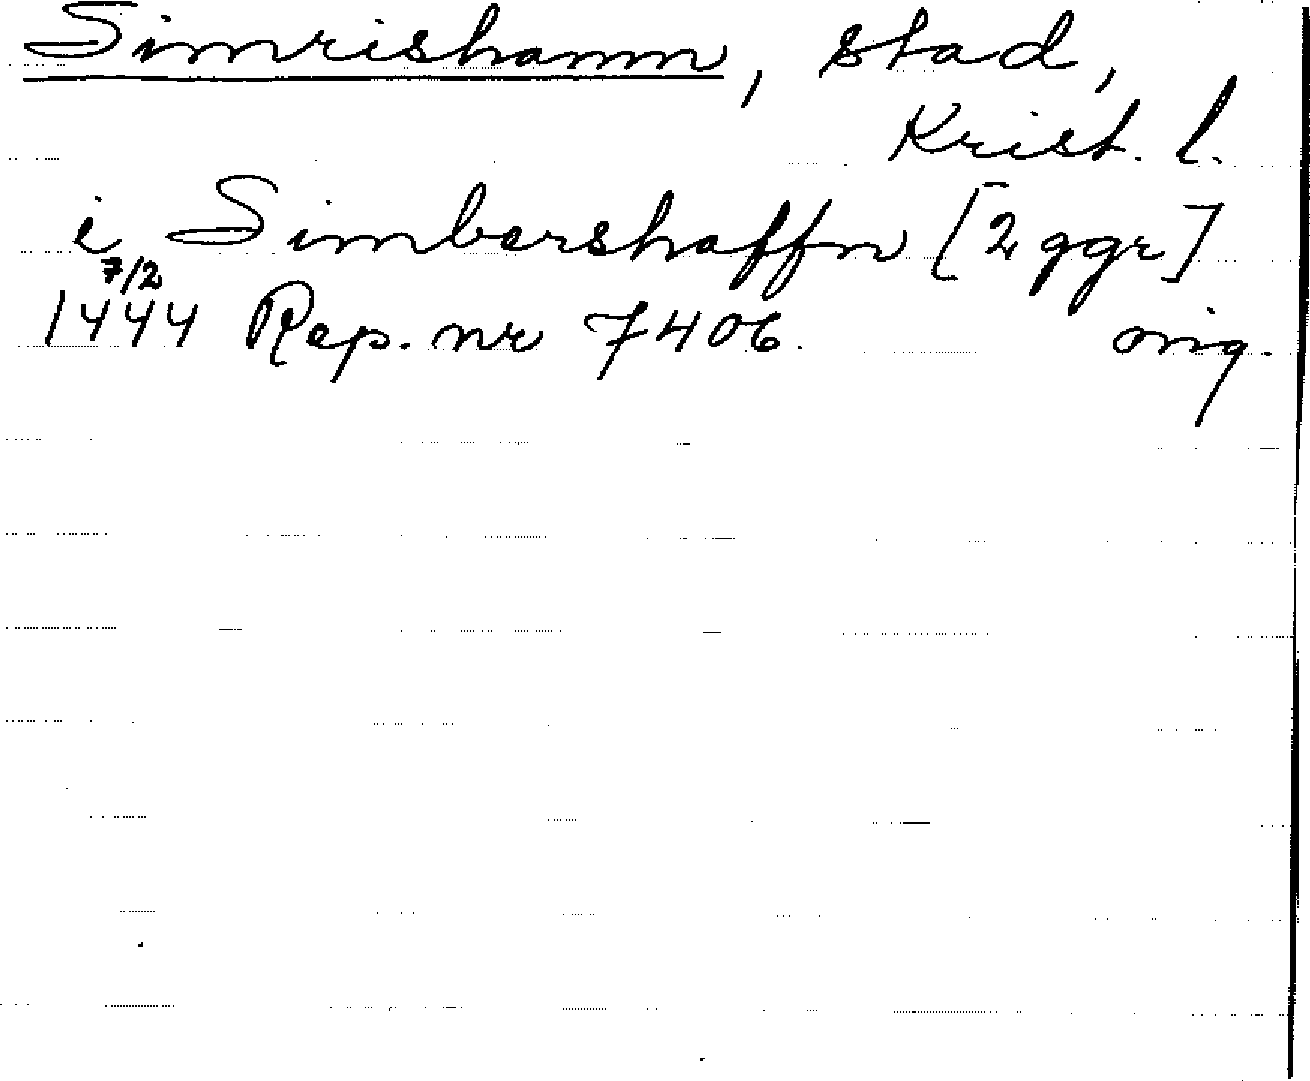 Simrishamn, stad,
Krist. l.
i Simbershaffn [2 ggr]
7/2
1444 Rep. nr 7406. orig.